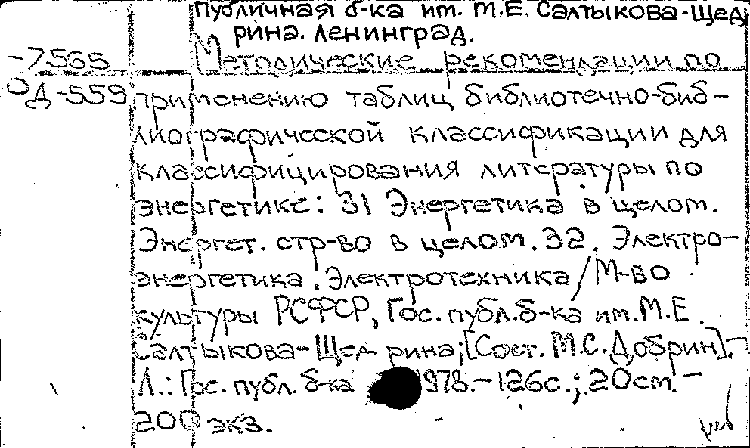 публичная б-ка им. М.Е. Салтыкова-Щед
рина. Ленинград.
-7565
Методические рекомендации по
Д-559 применению таблиц библиотечно-биб-
лиографической классификации для
классифицирования литературы по
энергетике: 31 Энергетика в целом.
Энергет. стр-во в целом. 32. Электро-
энергетика. Электротехника/М-во
культуры РСФСР, Гос. публ. б-ка им. М.Е.
Салтыкова-Щедрина; [Сост. М.С. Добрин].-
Л.: Гос. публ. б-ка 1978.-126с.; 20см.-
200 экз.